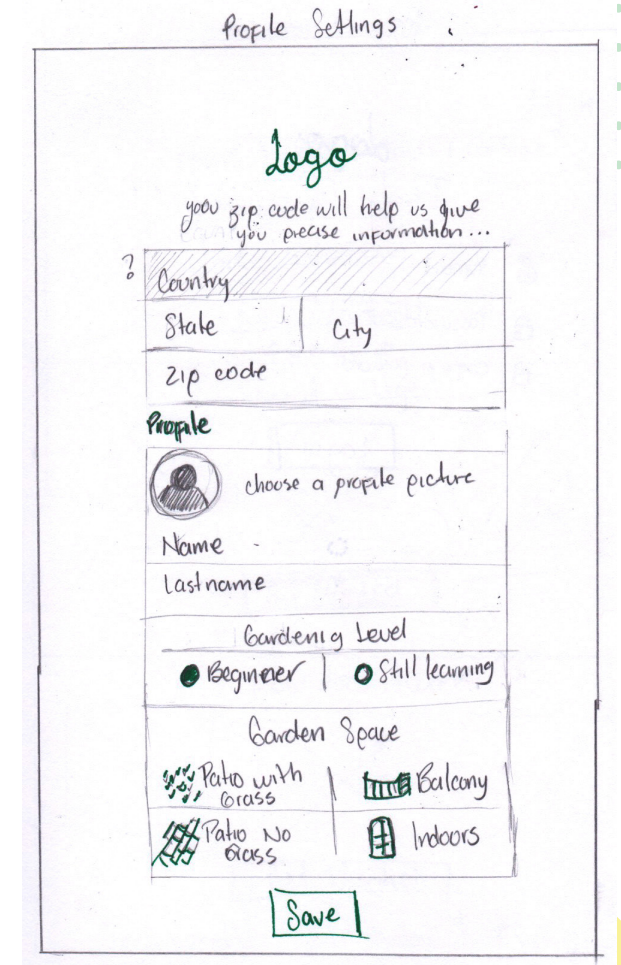 Profile Settings
Logo
your zip code will help us give
you precise information...
?
Country
State City
Zip code
Profile
choose a profile picture
Name
Lastname
Gardenig Level
Beginner Still learning
Garden Space
Patio with
Grass
Balcony
Patio No
Grass
Indoors
Save